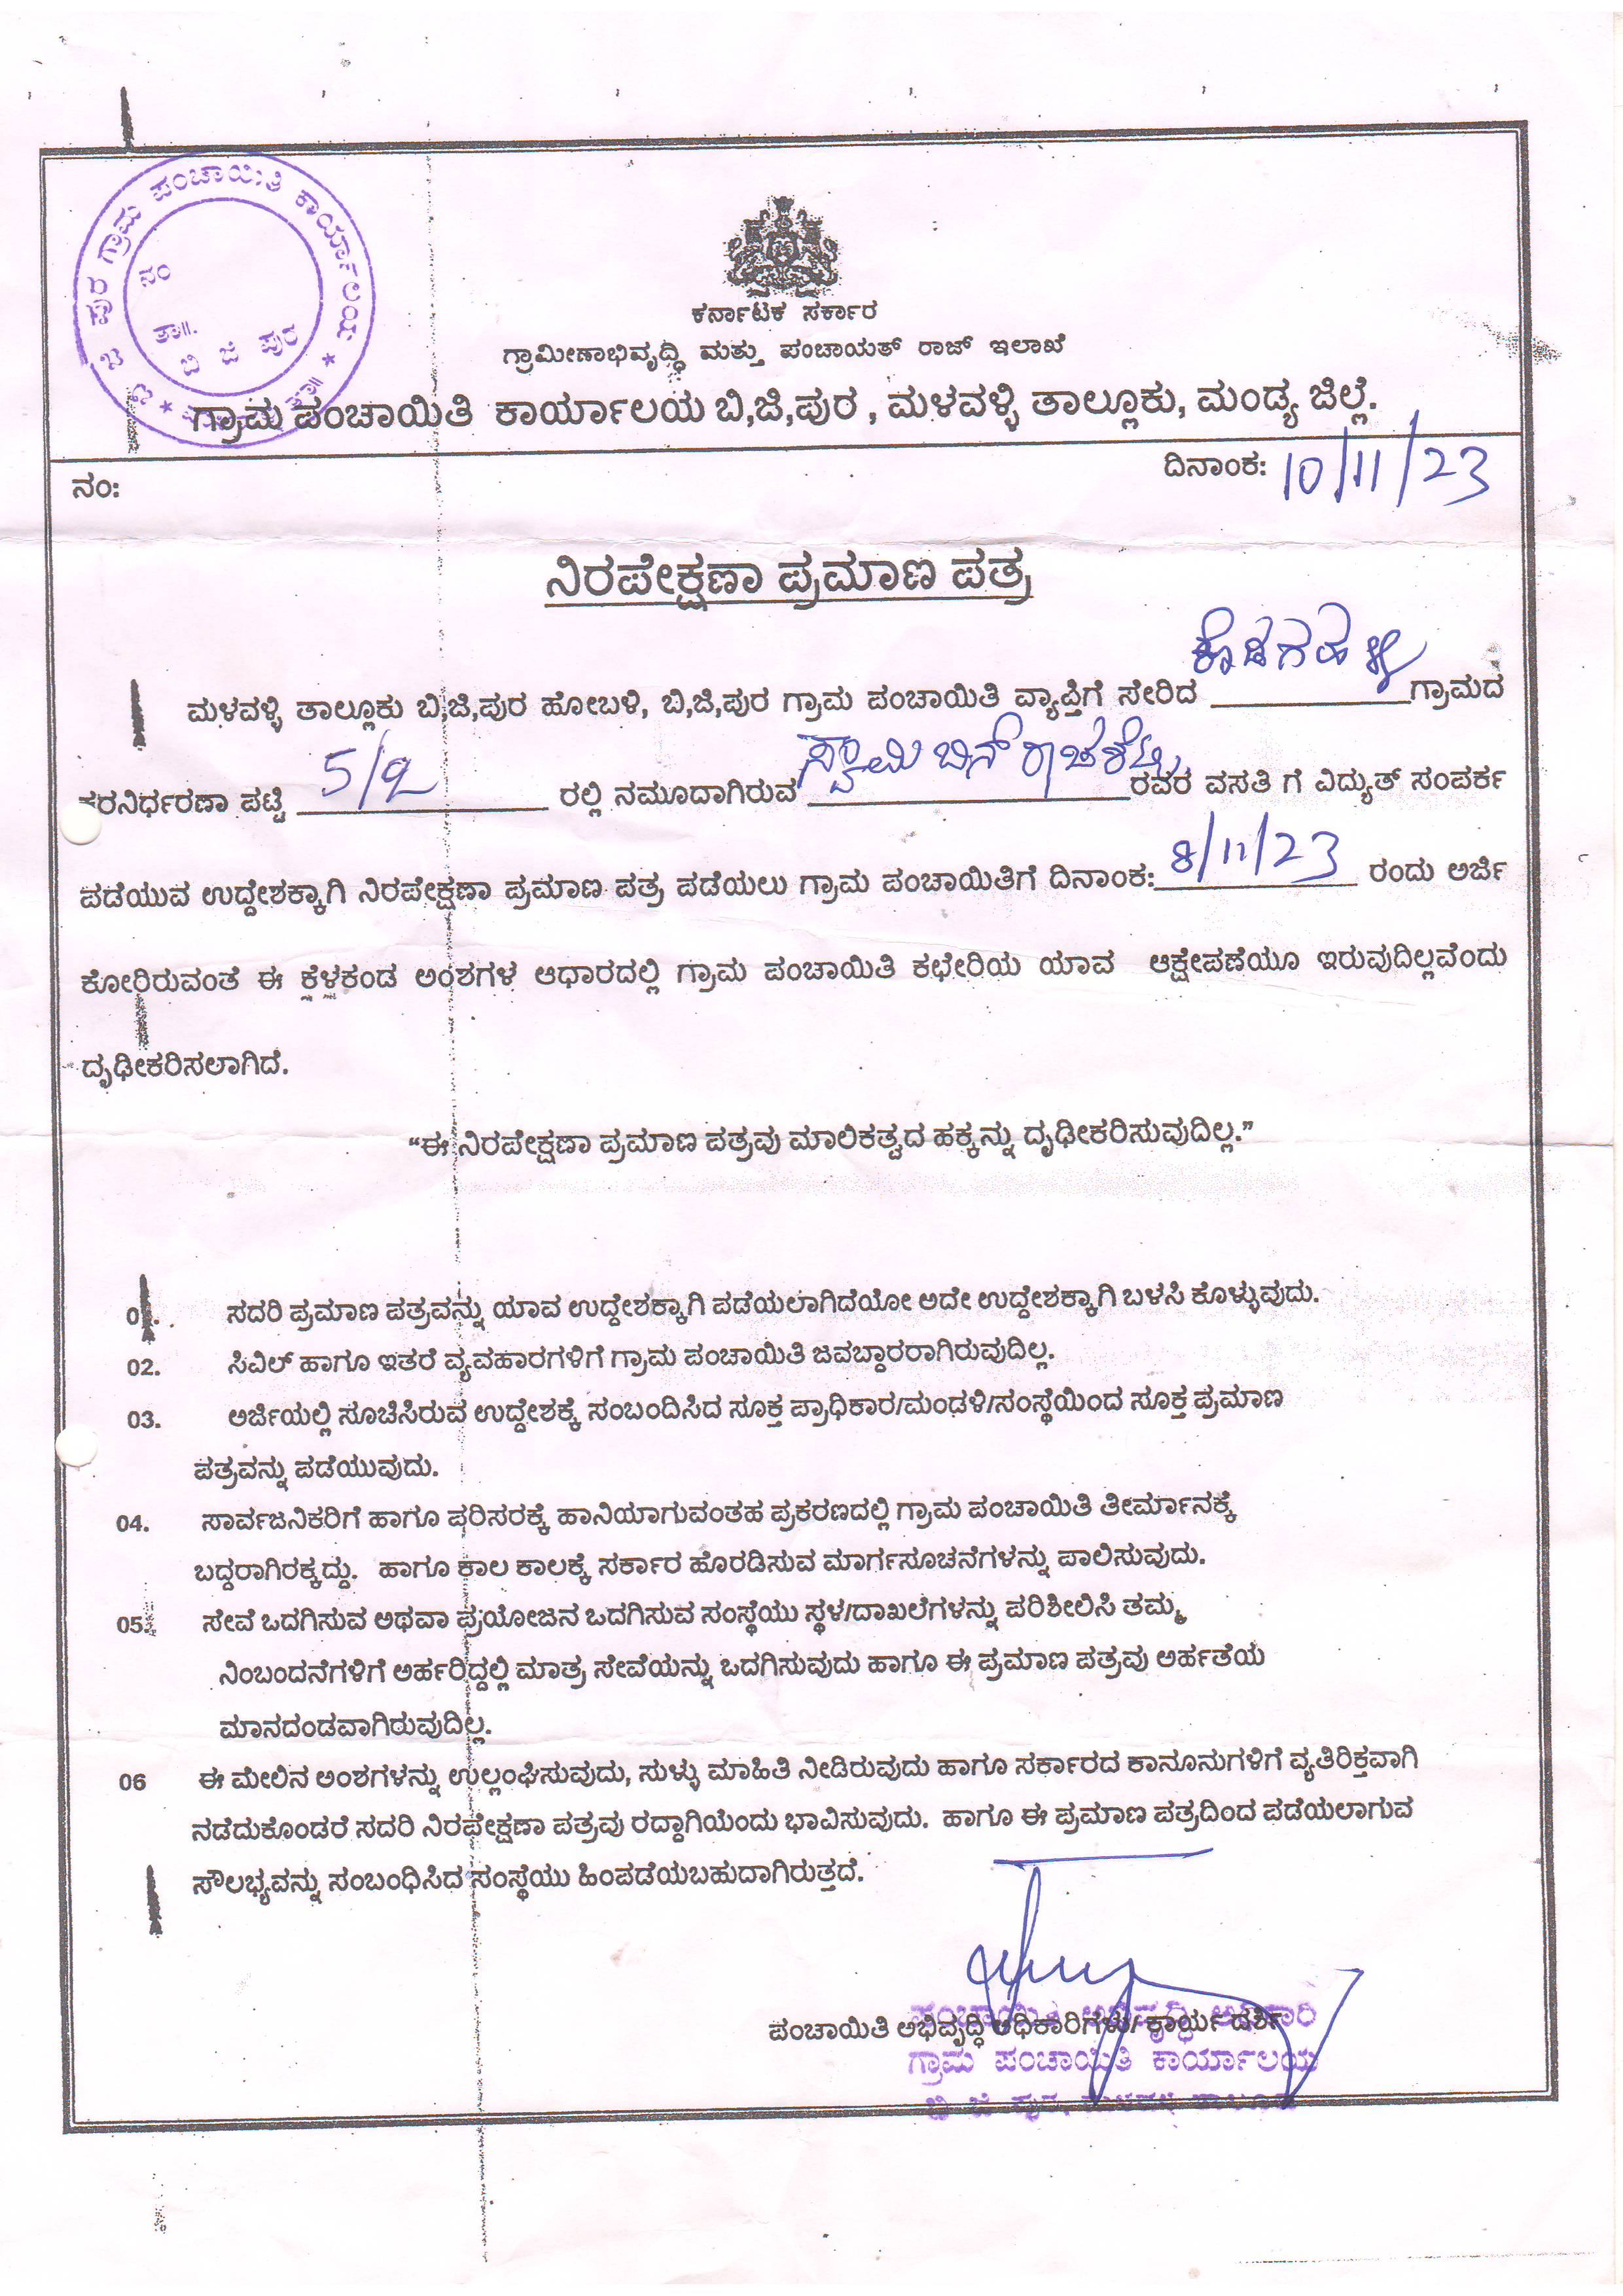 ಪುರ ಗ್ರಾಮ ಪಂಚಾಯಿತಿ ಕಾರ್ಯಾಲಯ
ನಂ
ತಾ॥.
ಬಿ ಜಿ ಪುರ
ಕರ್ನಾಟಕ ಸರ್ಕಾರ
ಗ್ರಾಮೀಣಾಭಿವೃದ್ಧಿ ಮತ್ತು ಪಂಚಾಯತ್ ರಾಜ್ ಇಲಾಖೆ
ಗ್ರಾಮ ಪಂಚಾಯಿತಿ ಕಾರ್ಯಾಲಯ ಬಿ,ಜಿ,ಪುರ , ಮಳವಳ್ಳಿ ತಾಲ್ಲೂಕು, ಮಂಡ್ಯ ಜಿಲ್ಲೆ.
ನಂ: ದಿನಾಂಕ: 10/11/23
ನಿರಪೇಕ್ಷಣಾ ಪ್ರಮಾಣ ಪತ್ರ
ಮಳವಳ್ಳಿ ತಾಲ್ಲೂಕು ಬಿ,ಜಿ,ಪುರ ಹೋಬಳಿ, ಬಿ,ಜಿ,ಪುರ ಗ್ರಾಮ ಪಂಚಾಯಿತಿ ವ್ಯಾಪ್ತಿಗೆ ಸೇರಿದ ಕೊಡಗಹಳ್ಳಿ ಗ್ರಾಮದ
ಕರನಿರ್ಧರಣಾ ಪಟ್ಟಿ 5/2 ರಲ್ಲಿ ನಮೂದಾಗಿರುವ ಸ್ವಾಮಿ ಬಿನ್ ರಾಚಶೆಟ್ಟಿ ರವರ ವಸತಿ ಗೆ ವಿದ್ಯುತ್ ಸಂಪರ್ಕ
ಪಡೆಯುವ ಉದ್ದೇಶಕ್ಕಾಗಿ ನಿರಪೇಕ್ಷಣಾ ಪ್ರಮಾಣ ಪತ್ರ ಪಡೆಯಲು ಗ್ರಾಮ ಪಂಚಾಯಿತಿಗೆ ದಿನಾಂಕ: 8/11/23 ರಂದು ಅರ್ಜಿ
ಕೋರಿರುವಂತೆ ಈ ಕೆಳಕಂಡ ಅಂಶಗಳ ಆಧಾರದಲ್ಲಿ ಗ್ರಾಮ ಪಂಚಾಯಿತಿ ಕಛೇರಿಯ ಯಾವ ಆಕ್ಷೇಪಣೆಯೂ ಇರುವುದಿಲ್ಲವೆಂದು
ದೃಢೀಕರಿಸಲಾಗಿದೆ.
“ಈ ನಿರಪೇಕ್ಷಣಾ ಪ್ರಮಾಣ ಪತ್ರವು ಮಾಲಿಕತ್ವದ ಹಕ್ಕನ್ನು ದೃಢೀಕರಿಸುವುದಿಲ್ಲ.”
01. ಸದರಿ ಪ್ರಮಾಣ ಪತ್ರವನ್ನು ಯಾವ ಉದ್ದೇಶಕ್ಕಾಗಿ ಪಡೆಯಲಾಗಿದೆಯೋ ಅದೇ ಉದ್ದೇಶಕ್ಕಾಗಿ ಬಳಸಿ ಕೊಳ್ಳುವುದು.
02. ಸಿವಿಲ್ ಹಾಗೂ ಇತರೆ ವ್ಯವಹಾರಗಳಿಗೆ ಗ್ರಾಮ ಪಂಚಾಯಿತಿ ಜವಬ್ದಾರರಾಗಿರುವುದಿಲ್ಲ.
03. ಅರ್ಜಿಯಲ್ಲಿ ಸೂಚಿಸಿರುವ ಉದ್ದೇಶಕ್ಕೆ ಸಂಬಂದಿಸಿದ ಸೂಕ್ತ ಪ್ರಾಧಿಕಾರ/ಮಂಡಳಿ/ಸಂಸ್ಥೆಯಿಂದ ಸೂಕ್ತ ಪ್ರಮಾಣ
ಪತ್ರವನ್ನು ಪಡೆಯುವುದು.
04. ಸಾರ್ವಜನಿಕರಿಗೆ ಹಾಗೂ ಪರಿಸರಕ್ಕೆ ಹಾನಿಯಾಗುವಂತಹ ಪ್ರಕರಣದಲ್ಲಿ ಗ್ರಾಮ ಪಂಚಾಯಿತಿ ತೀರ್ಮಾನಕ್ಕೆ
ಬದ್ದರಾಗಿರಕ್ಕದ್ದು. ಹಾಗೂ ಕಾಲ ಕಾಲಕ್ಕೆ ಸರ್ಕಾರ ಹೊರಡಿಸುವ ಮಾರ್ಗಸೂಚನೆಗಳನ್ನು ಪಾಲಿಸುವುದು.
05. ಸೇವೆ ಒದಗಿಸುವ ಅಥವಾ ಪ್ರಯೋಜನ ಒದಗಿಸುವ ಸಂಸ್ಥೆಯು ಸ್ಥಳ/ದಾಖಲೆಗಳನ್ನು ಪರಿಶೀಲಿಸಿ ತಮ್ಮ
ನಿಂಬಂದನೆಗಳಿಗೆ ಅರ್ಹರಿದ್ದಲ್ಲಿ ಮಾತ್ರ ಸೇವೆಯನ್ನು ಒದಗಿಸುವುದು ಹಾಗೂ ಈ ಪ್ರಮಾಣ ಪತ್ರವು ಅರ್ಹತೆಯ
ಮಾನದಂಡವಾಗಿರುವುದಿಲ್ಲ.
06 ಈ ಮೇಲಿನ ಅಂಶಗಳನ್ನು ಉಲ್ಲಂಘಿಸುವುದು, ಸುಳ್ಳು ಮಾಹಿತಿ ನೀಡಿರುವುದು ಹಾಗೂ ಸರ್ಕಾರದ ಕಾನೂನುಗಳಿಗೆ ವ್ಯತಿರಿಕ್ತವಾಗಿ
ನಡೆದುಕೊಂಡರೆ ಸದರಿ ನಿರಪೇಕ್ಷಣಾ ಪತ್ರವು ರದ್ದಾಗಿಯೆಂದು ಭಾವಿಸುವುದು. ಹಾಗೂ ಈ ಪ್ರಮಾಣ ಪತ್ರದಿಂದ ಪಡೆಯಲಾಗುವ
ಸೌಲಭ್ಯವನ್ನು ಸಂಬಂಧಿಸಿದ ಸಂಸ್ಥೆಯು ಹಿಂಪಡೆಯಬಹುದಾಗಿರುತ್ತದೆ.
ಪಂಚಾಯಿತಿ ಅಭಿವೃದ್ಧಿ ಅಧಿಕಾರಿಗಳು/ಕಾರ್ಯದರ್ಶಿ
ಪಂಚಾಯಿತಿ ಅಭಿವೃದ್ಧಿ ಅಧಿಕಾರಿ
ಗ್ರಾಮ ಪಂಚಾಯಿತಿ ಕಾರ್ಯಾಲಯ
ಬಿ ಜಿ ಪುರ,